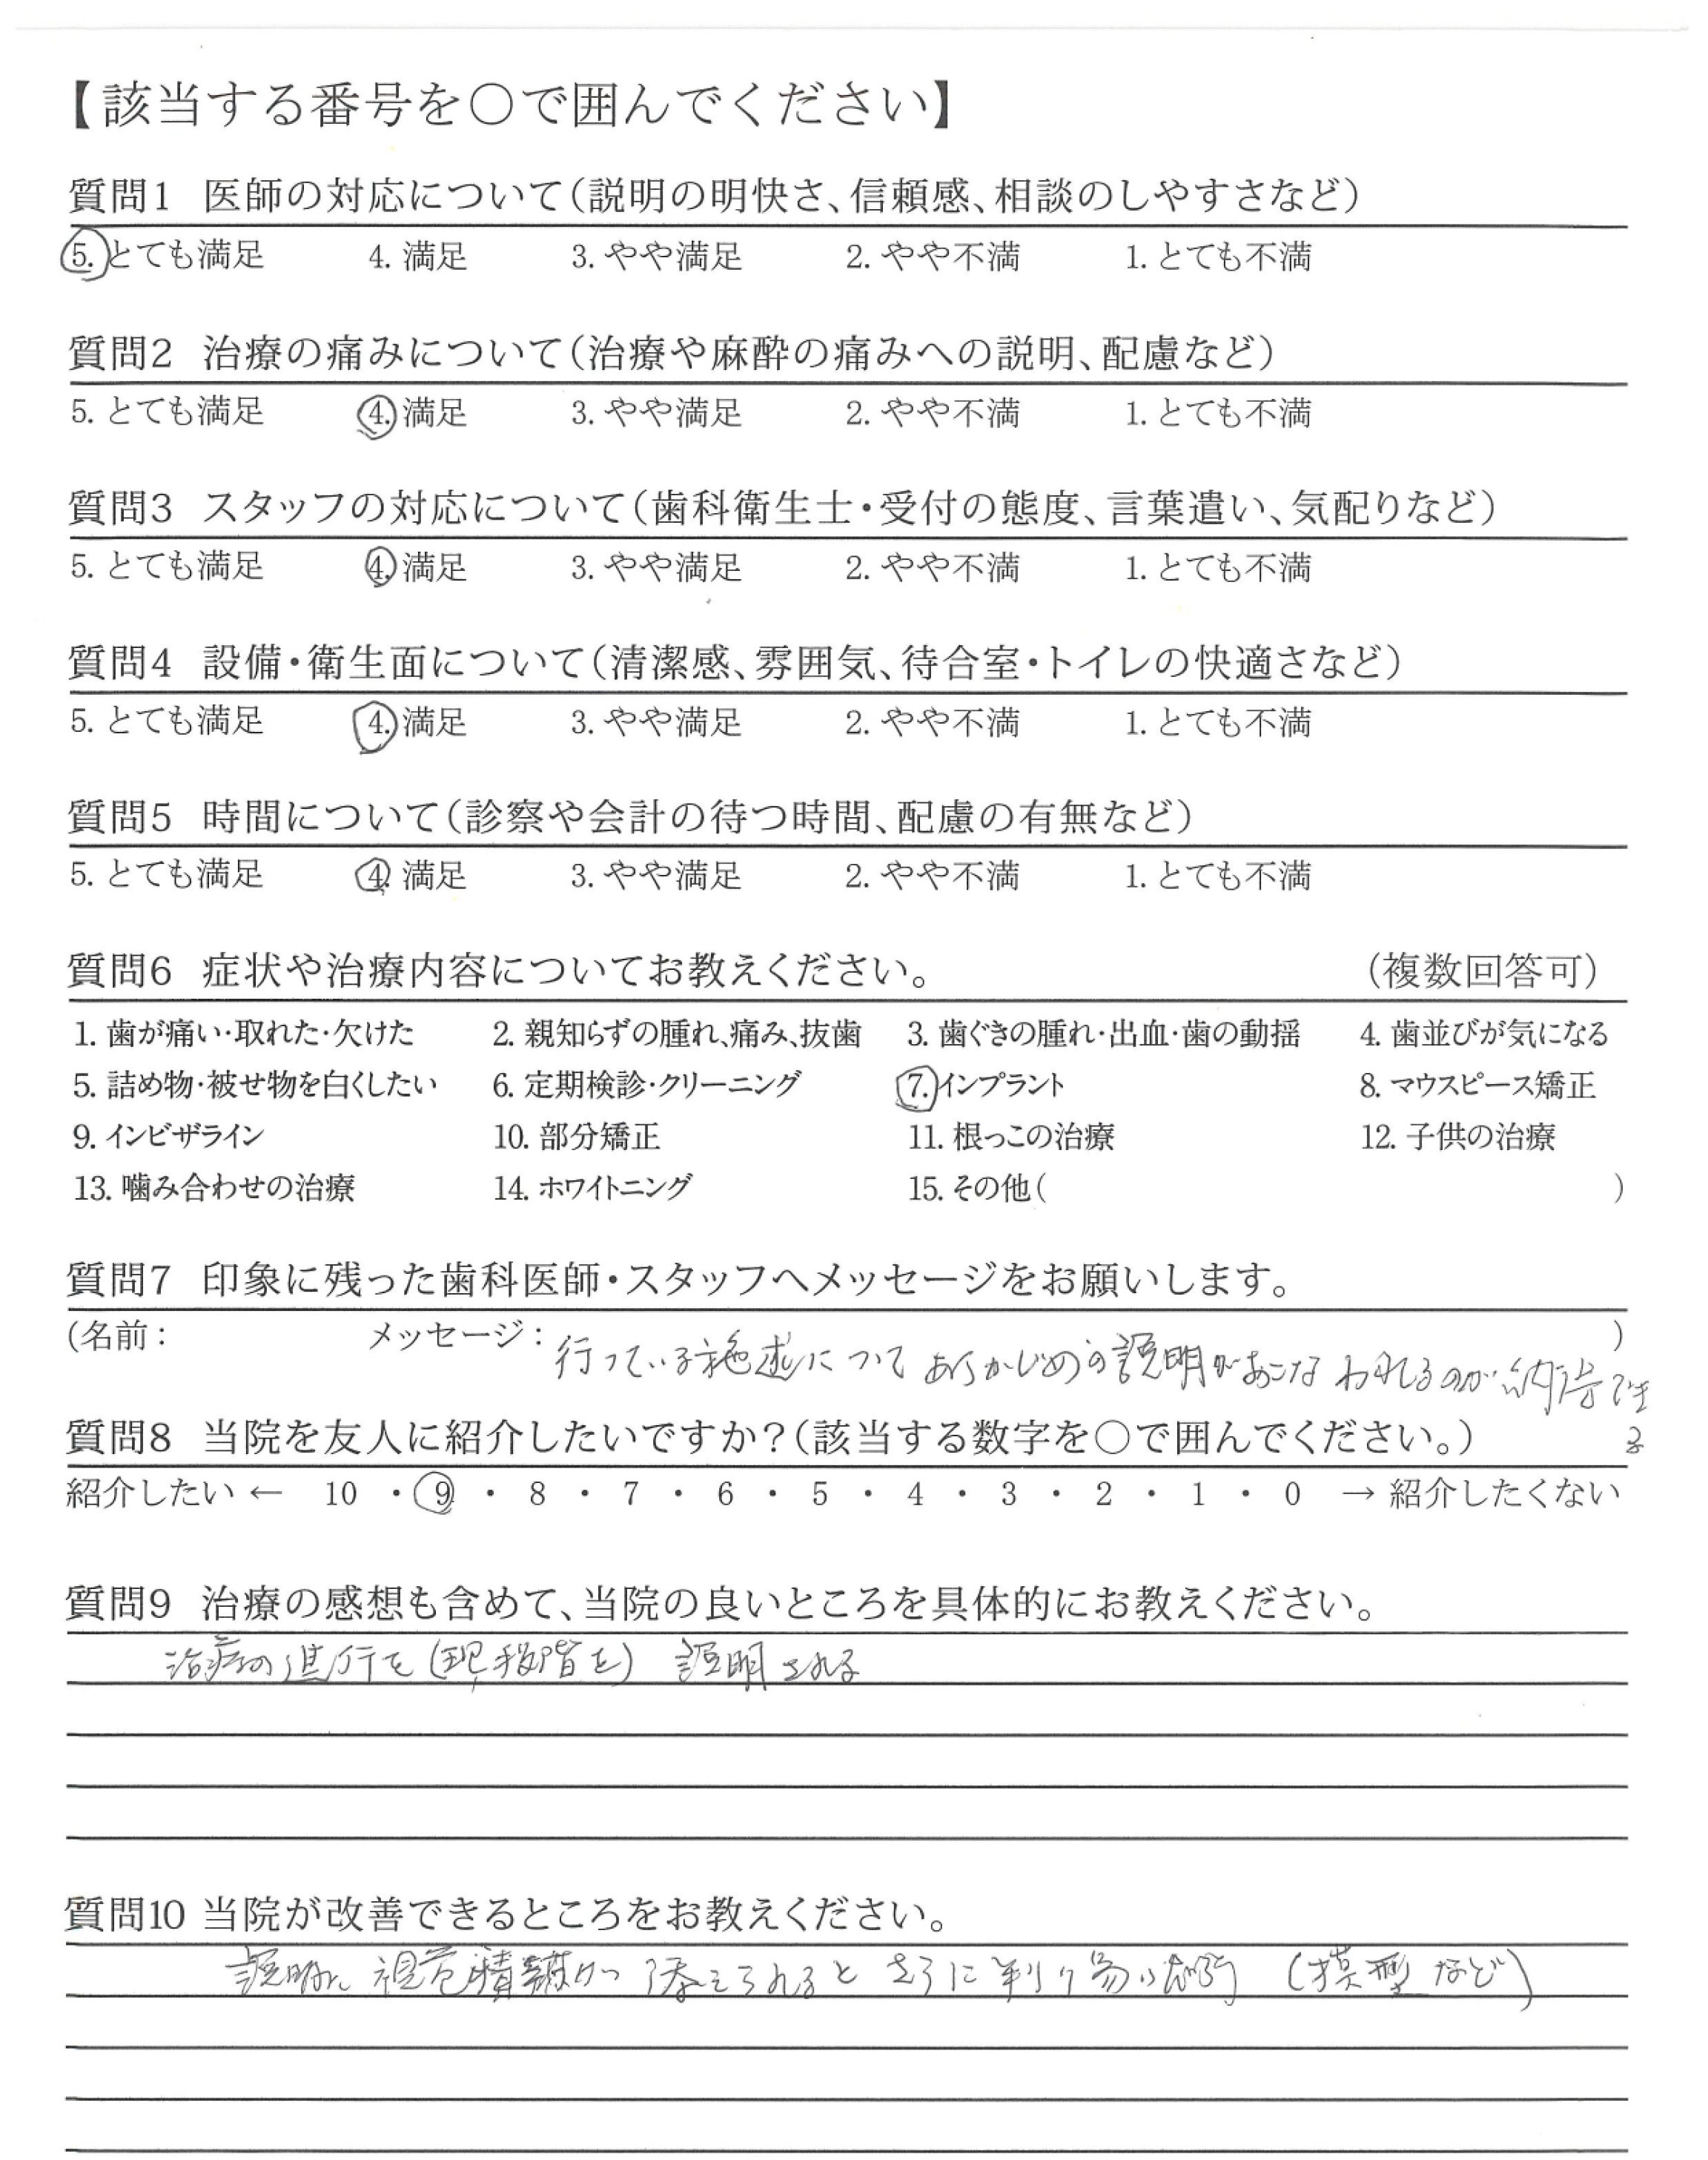 【該当する番号を○で囲んでください】
質問1 医師の対応について(説明の明快さ、信頼感、相談のしやすさなど)
5. とても満足 4. 満足 3. やや満足 2. やや不満 1. とても不満
質問2 治療の痛みについて(治療や麻酔の痛みへの説明、配慮など)
5. とても満足 4. 満足 3. やや満足 2. やや不満 1. とても不満
質問3 スタッフの対応について(歯科衛生士・受付の態度、言葉遣い、気配りなど)
5. とても満足 4. 満足 3. やや満足 2. やや不満 1. とても不満
質問4 設備・衛生面について(清潔感、雰囲気、待合室・トイレの快適さなど)
5. とても満足 4. 満足 3. やや満足 2. やや不満 1. とても不満
質問5 時間について(診察や会計の待つ時間、配慮の有無など)
5. とても満足 4. 満足 3. やや満足 2. やや不満 1. とても不満
質問6 症状や治療内容についてお教えください。 (複数回答可)
1. 歯が痛い・取れた・欠けた 2. 親知らずの腫れ、痛み、抜歯 3. 歯ぐきの腫れ・出血・歯の動揺 4. 歯並びが気になる
5. 詰め物・被せ物を白くしたい 6. 定期検診・クリーニング 7. インプラント 8. マウスピース矯正
9. インビザライン 10. 部分矯正 11. 根っこの治療 12. 子供の治療
13. 噛み合わせの治療 14. ホワイトニング 15. その他( )
質問7 印象に残った歯科医師・スタッフへメッセージをお願いします。
(名前: メッセージ: )
行っている施術について あらかじめの説明がおこなわれるのが納得でき
る
質問8 当院を友人に紹介したいですか?(該当する数字を○で囲んでください。)
紹介したい ← 10 ・ 9 ・ 8 ・ 7 ・ 6 ・ 5 ・ 4 ・ 3 ・ 2 ・ 1 ・ 0 → 紹介したくない
質問9 治療の感想も含めて、当院の良いところを具体的にお教えください。
治療の進行を(現段階を) 説明される
質問10 当院が改善できるところをお教えください。
説明に 視覚 添えられると さらに 判り易い (模型など)